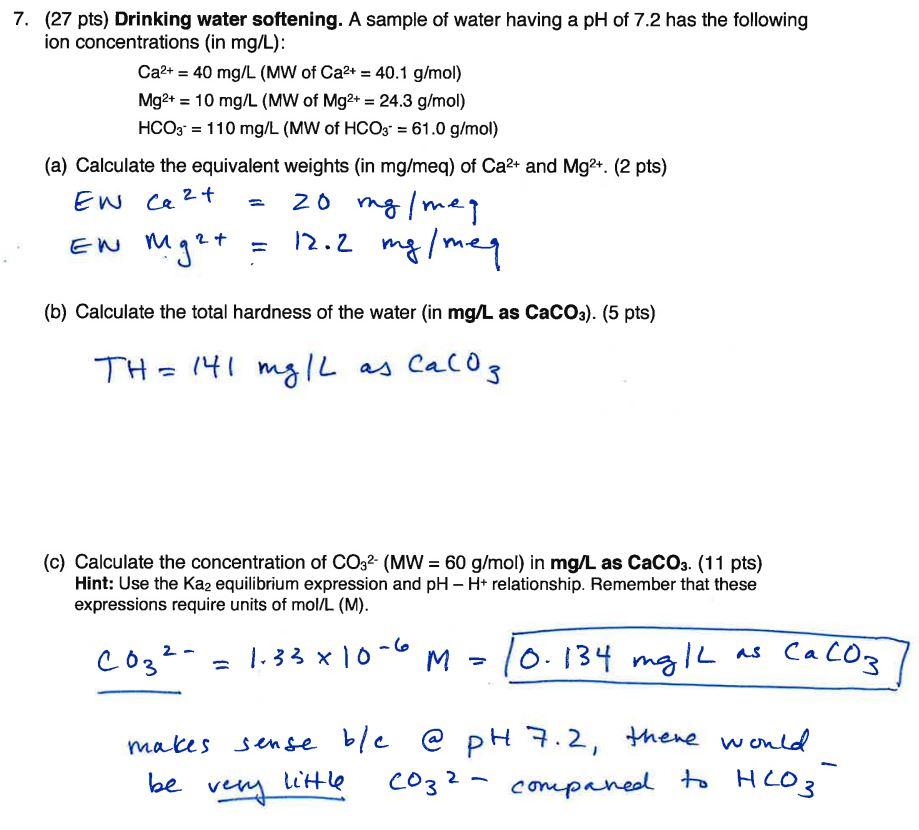 7. (27 pts) Drinking water softening. A sample of water having a pH of 7.2 has the following
ion concentrations (in mg/L):
Ca2+ = 40 mg/L (MW of Ca2+ = 40.1 g/mol)
Mg2+ = 10 mg/L (MW of Mg2+ = 24.3 g/mol)
HCO3- = 110 mg/L (MW of HCO3- = 61.0 g/mol)
(a) Calculate the equivalent weights (in mg/meq) of Ca2+ and Mg2+. (2 pts)
EW Ca2+ = 20 mg/meq
EW Mg2+ = 12.2 mg/meq
(b) Calculate the total hardness of the water (in mg/L as CaCO3). (5 pts)
TH = 141 mg/L as CaCO3
(c) Calculate the concentration of CO32- (MW = 60 g/mol) in mg/L as CaCO3. (11 pts)
Hint: Use the Ka2 equilibrium expression and pH – H+ relationship. Remember that these
expressions require units of mol/L (M).
CO32- = 1.33 x 10-6 M = 0.134 mg/L as CaCO3
makes sense b/c @ pH 7.2, there would
be very little CO32- compared to HCO3-